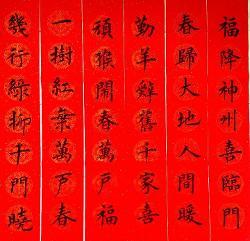 福降神州喜臨門
春歸大地人間暖
勤羊辭舊千家喜
頑猴鬧春萬戶福
一樹紅葉萬戶春
幾行綠柳千門曉